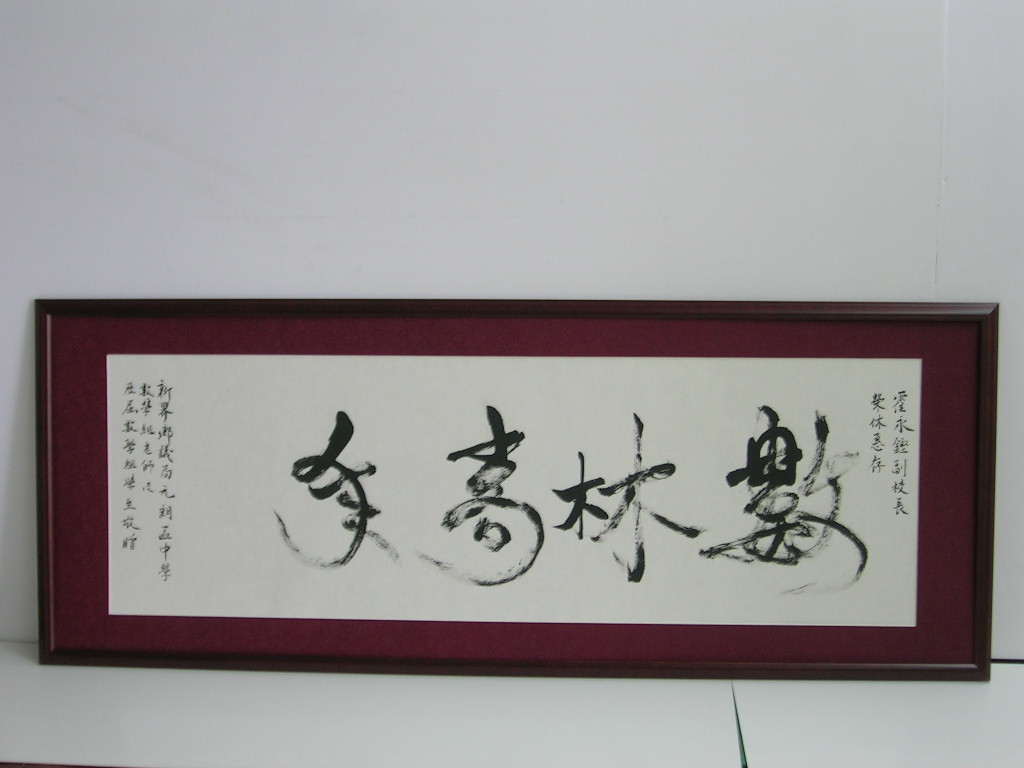 霍永鏗副校長
榮休惠存
數林
新界鄉議局元朗區中學
數學組老師及
歷屆數學組學生敬贈